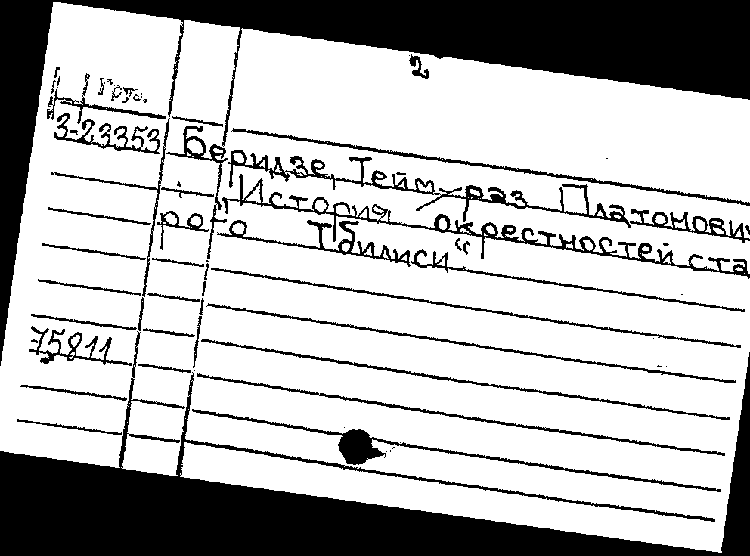 2
Груз.
3-23353 Беридзе, Тейм-раз Платонович
"История окрестностей ста
рого Тбилиси"
75811